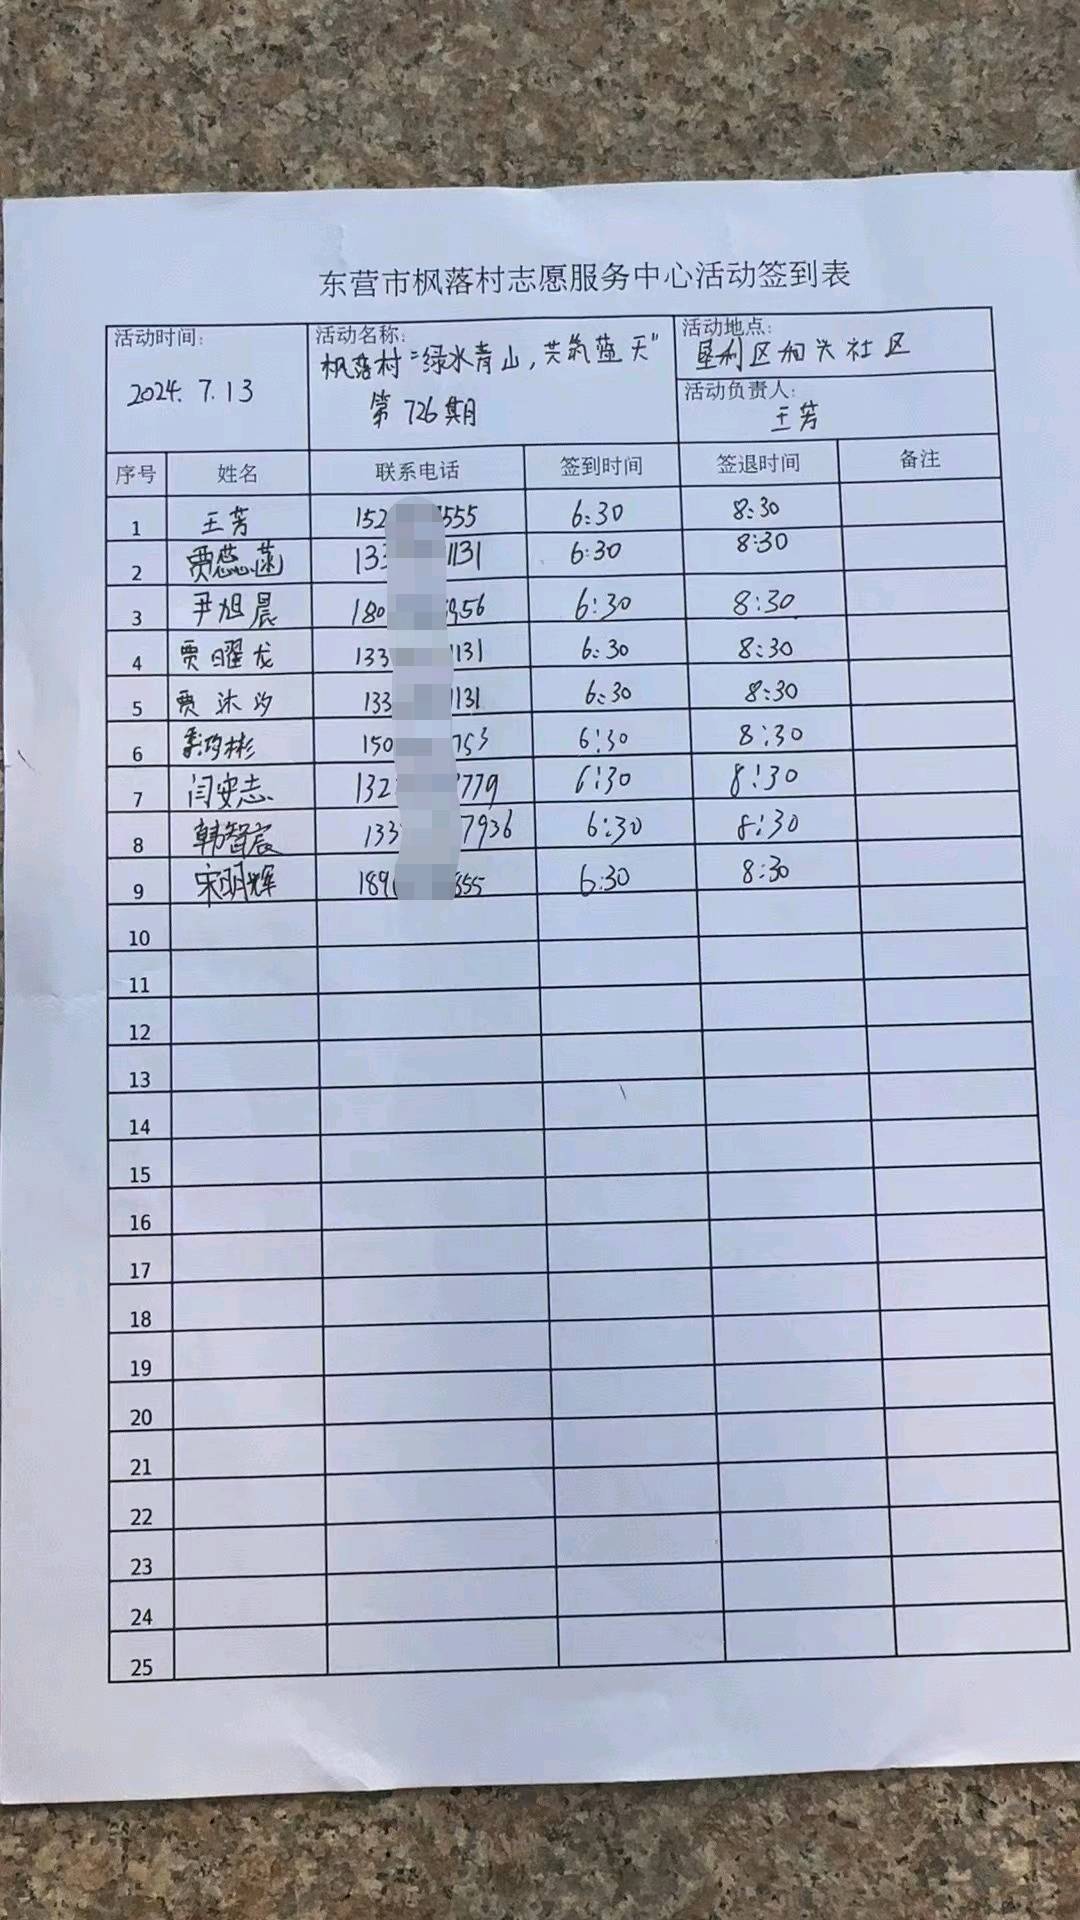 东营市枫落村志愿服务中心活动签到表
活动时间: 活动名称: 活动地点:
2024. 7. 13 枫落村“绿水青山,共筑蓝天” 垦利区 社区
第 726 期 活动负责人:
王芳
序号 姓名 联系电话 签到时间 签退时间 备注
1 王芳 152 555 6:30 8:30
2 贾蕊菡 133 1131 6:30 8:30
3 尹旭晨 180 956 6:30 8:30
4 贾曜龙 133 131 6:30 8:30
5 贾沐汐 133 131 6:30 8:30
6 150 753 6:30 8:30
7 闫安志 132 779 6:30 8:30
8 韩智宸 133 7936 6:30 8:30
9 宋明辉 189 855 6:30 8:30
10
11
12
13
14
15
16
17
18
19
20
21
22
23
24
25